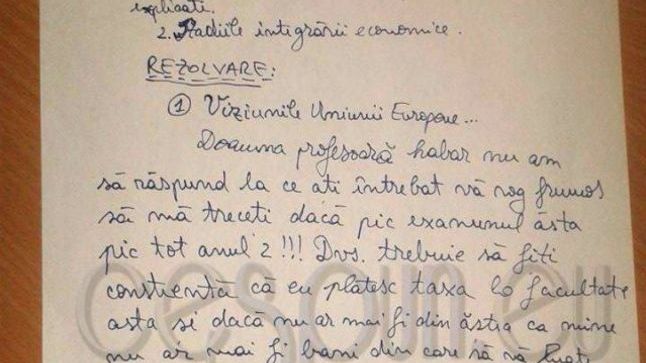 explicati.
2. Stadiile integrării economice.
REZOLVARE:
① Viziunile Uniunii Europene...
Doamna profesoară habar nu am
să răspund la ce ati întrebat vă rog frumos
să mă treceti dacă pic examenul ăsta
pic tot anul 2 !!! Dvs. trebuie să fiti
constientă că eu plătesc taxa la facultate
asta si dacă nu ar mai fi din ăstia ca mine
nu ar mai fi bani din care să vă
cespun.eu